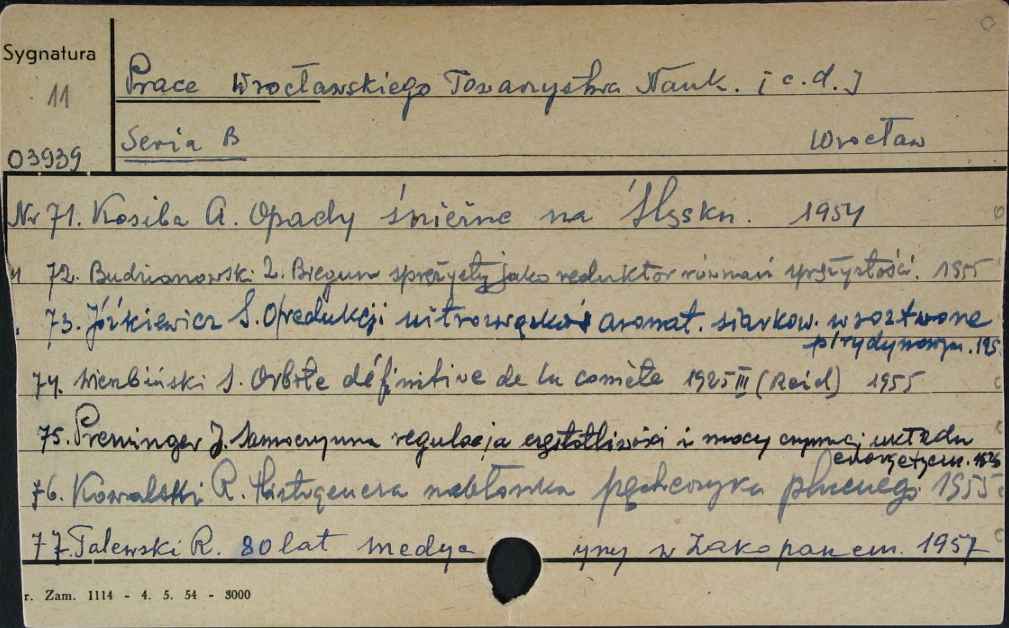 Sygnatura
11
Prace Wrocławskiego Towarzystwa Nauk. [c.d.]
Seria B Wrocław
03939
Nr 71. Kosiba A. Opady śnieżne na Śląsku. 1954
" 72. Budzianowski Z. Biegun sprężysty jako reduktor równań sprężystości. 1955
73. Jóźkiewicz S. O redukcji aromat. siarkow. w roztworze
pirydynowym. 195
74. Wierzbiński S. Orbite définitive de la comète 1925 III (Reid) 1955
75. Preminger J. Samoczynna regulacja częstotliwości i mocy czynnej układu
energetyczn. 1955
76. Kowalski R. Histogeneza nabłonka pęcherzyka płucnego 1955
77. Talewski R. 80 lat medycyny w Zakopanem. 1957
r. Zam. 1114 - 4. 5. 54 - 3000